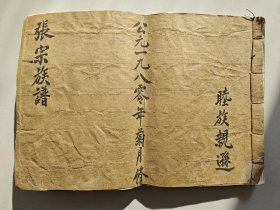 睦族親遜
公元一九八零年菊月修
張宗族譜